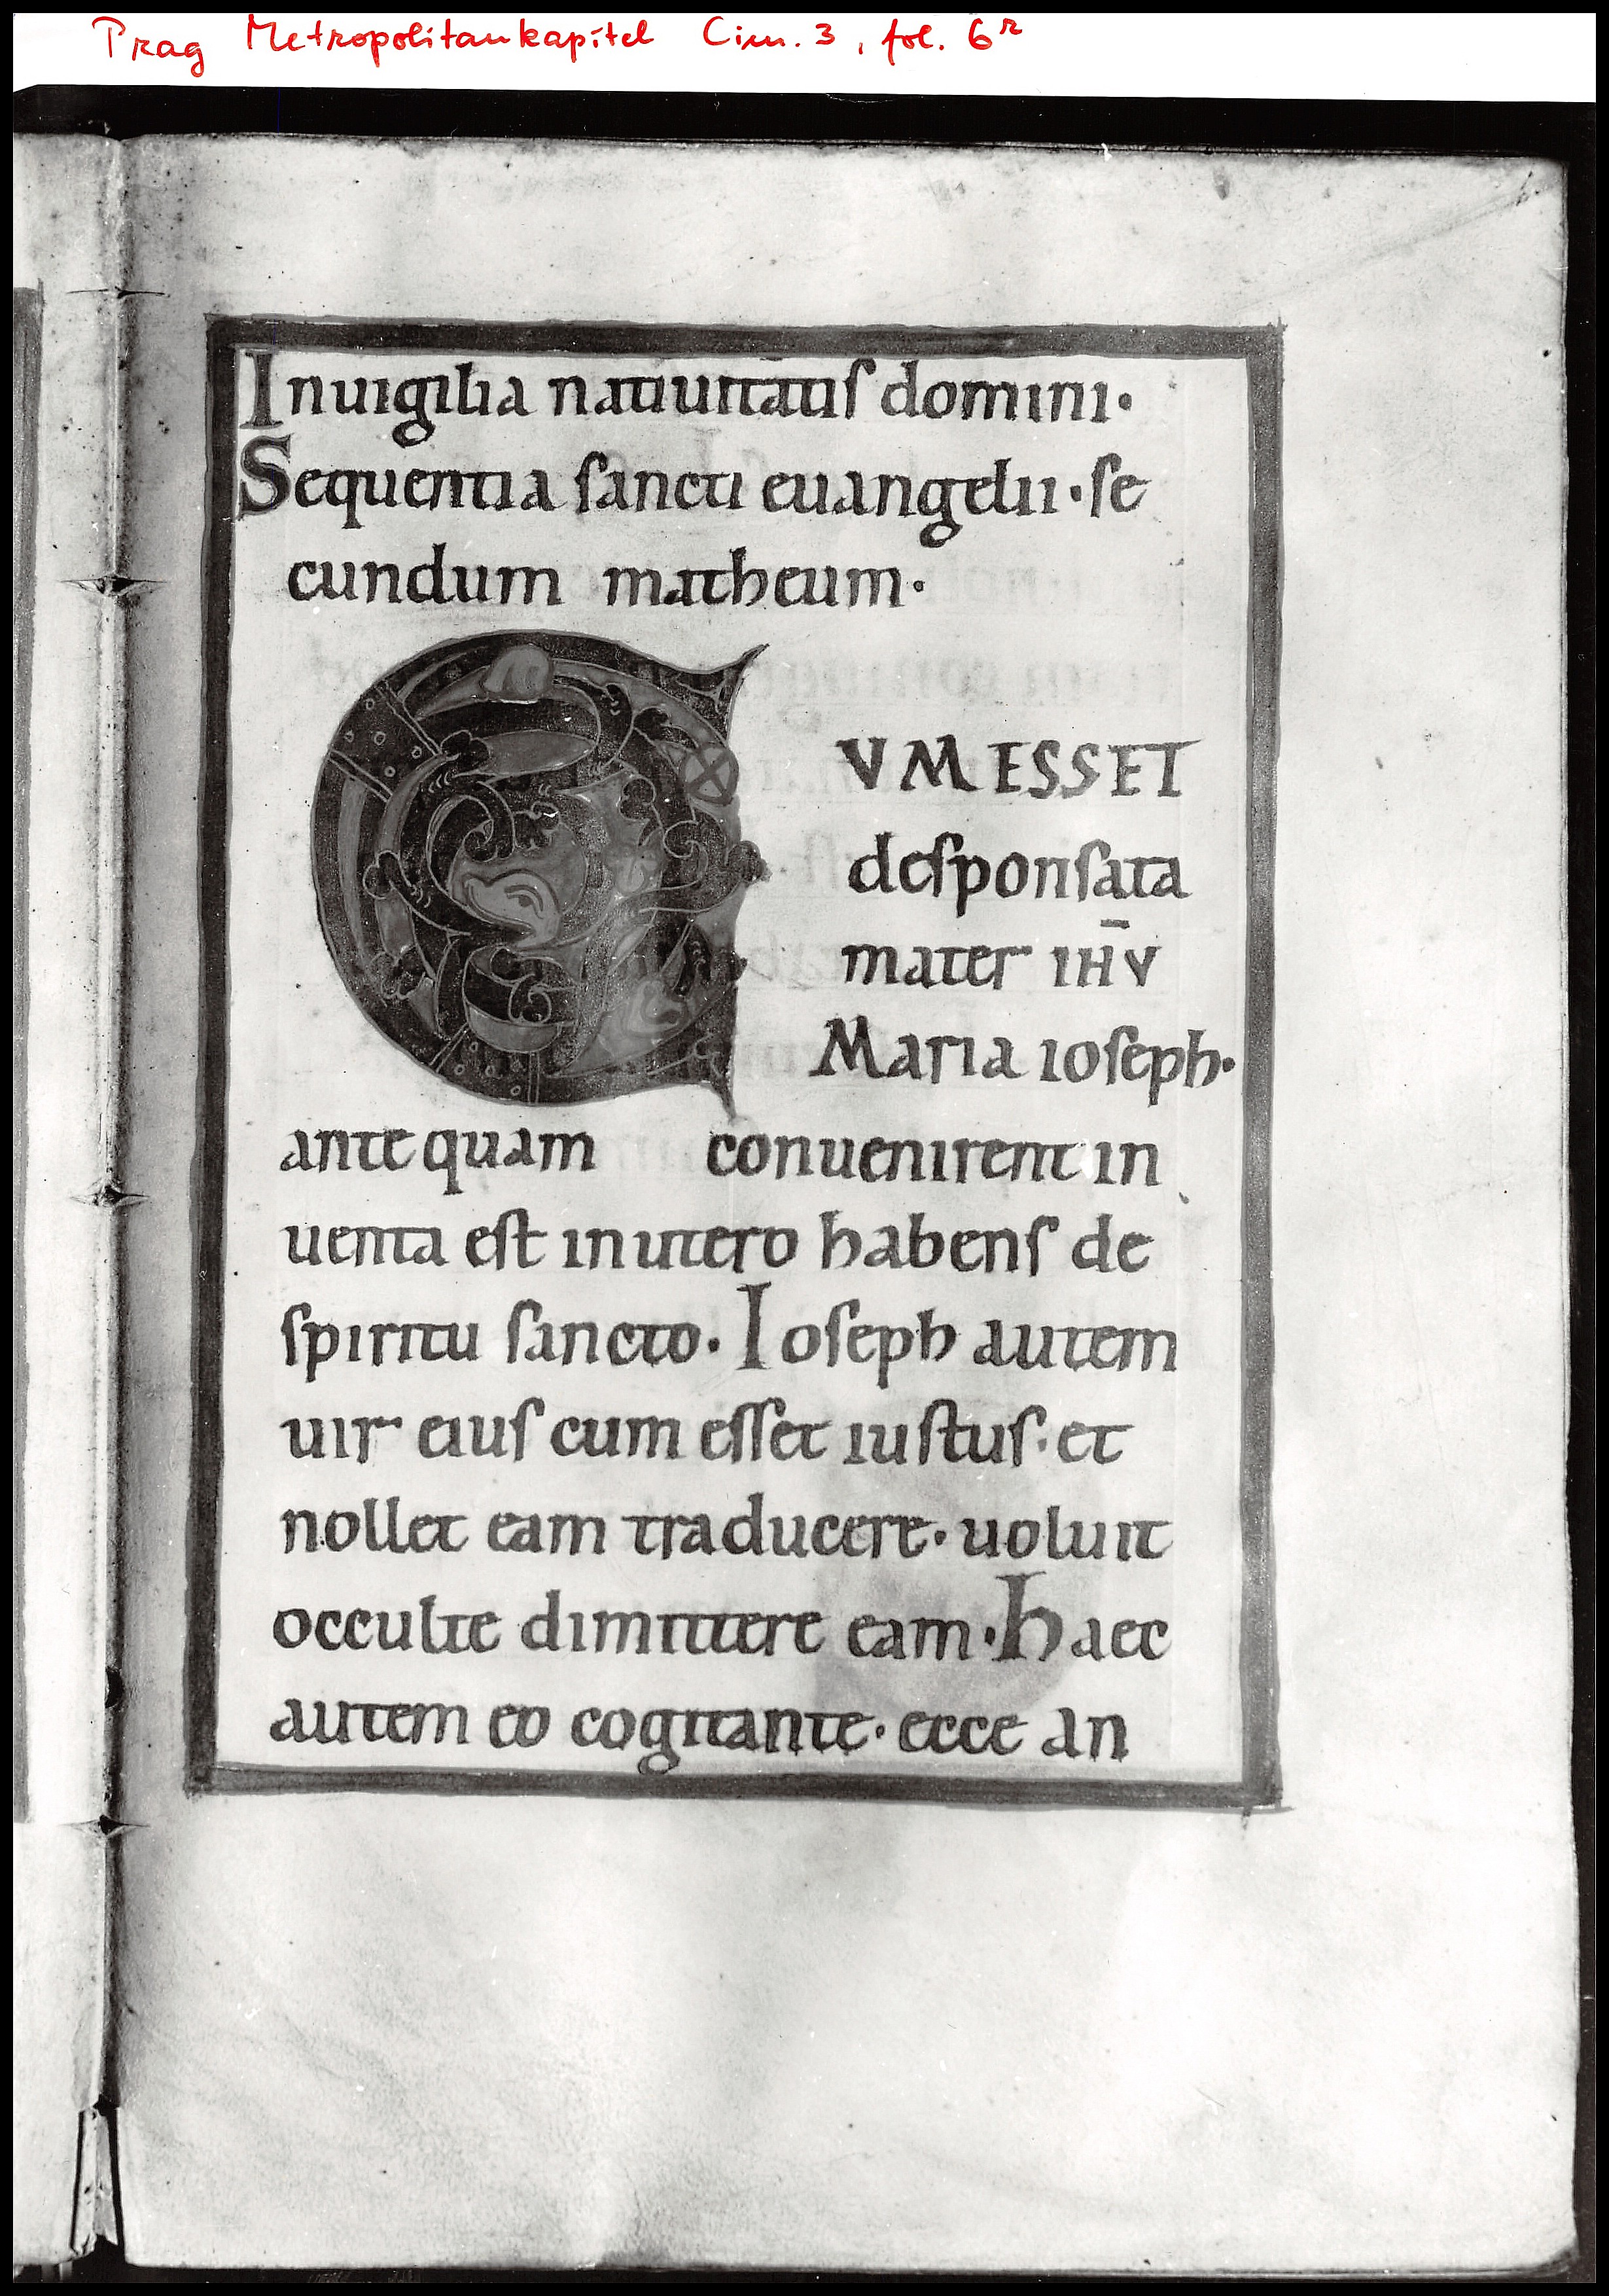 Prag Metropolitankapitel Cim. 3, fol. 6r
In uigilia natiuitatis domini·
Sequentia sancti euangelii· se
cundum matheum·
CVM ESSET
desponsata
mater IHV̄
Maria ioseph·
ante quam conuenirent in
uenta est in utero habens de
spiritu sancto· Ioseph autem
uir eius cum esset iustus· et
nollet eam traducere· uoluit
occulte dimittere eam· haec
autem eo cogitante· ecce an